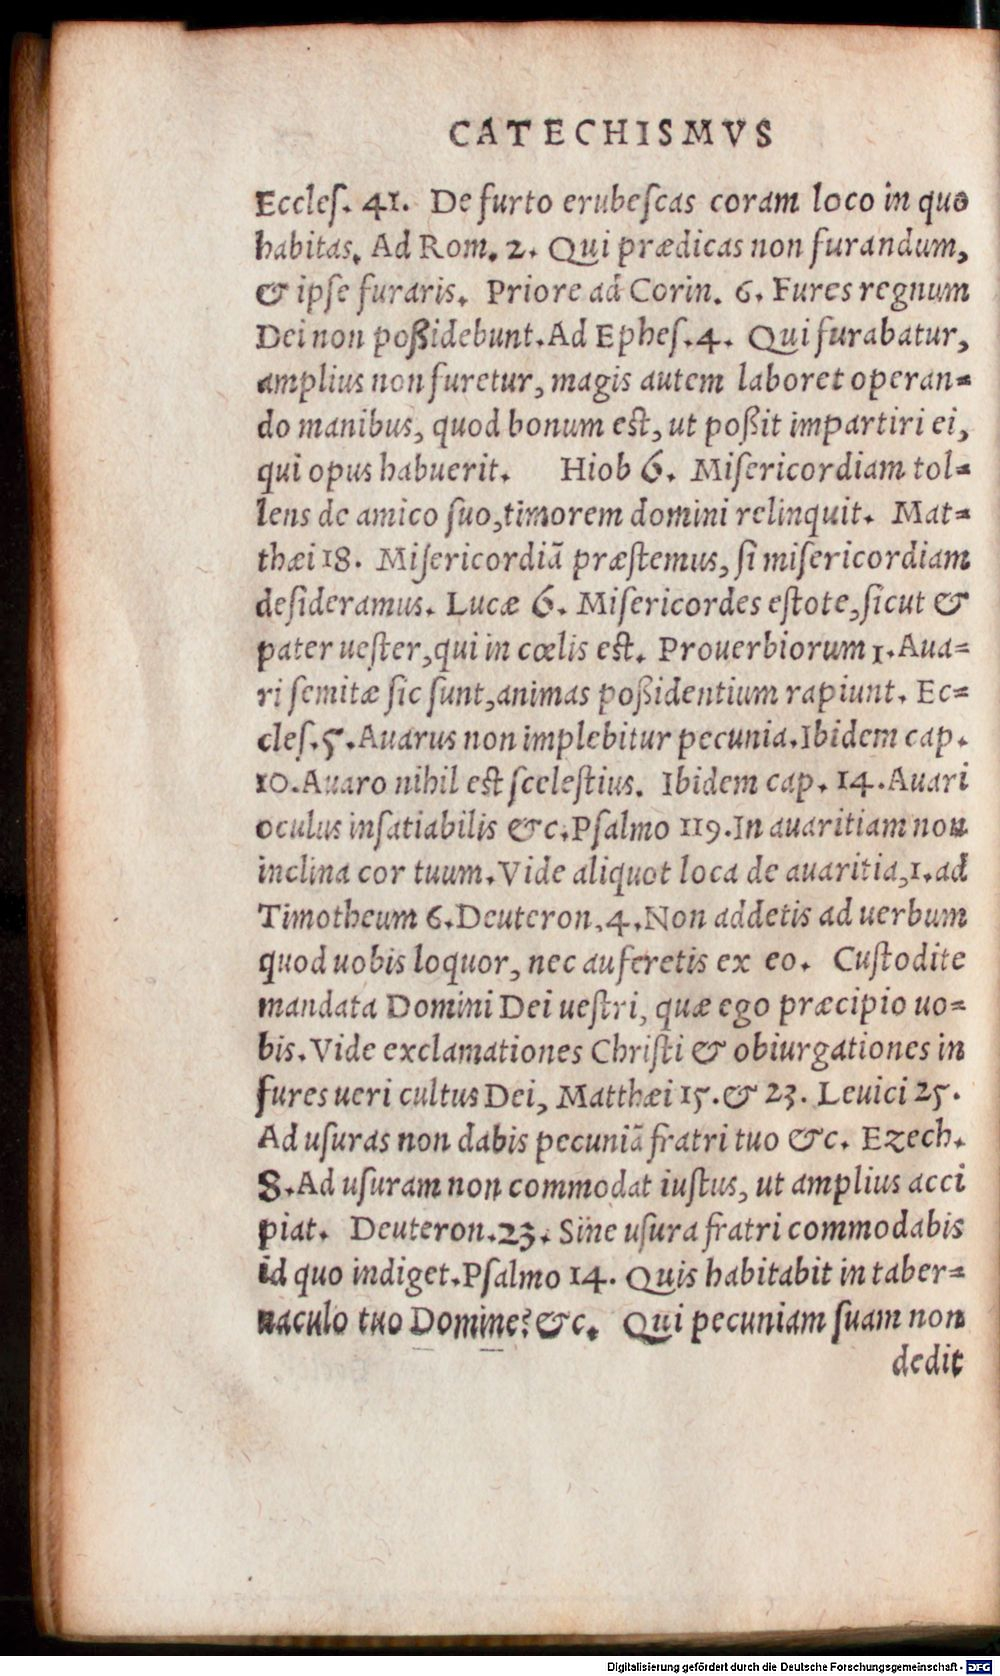 CATECHISMVS
Eccles. 41. De furto erubescas coram loco in quo
habitas. Ad Rom. 2. Qui prædicas non furandum,
& ipse furaris. Priore ad Corin. 6. Fures regnum
Dei non poßidebunt. Ad Ephes. 4. Qui furabatur,
amplius non furetur, magis autem laboret operan=
do manibus, quod bonum est, ut poßit impartiri ei,
qui opus habuerit. Hiob 6. Misericordiam tol=
lens de amico suo, timorem domini relinquit. Mat=
thæi 18. Misericordiā præstemus, si misericordiam
desideramus. Lucæ 6. Misericordes estote, sicut &
pater uester, qui in cœlis est. Prouerbiorum 1. Aua=
ri semitæ sic sunt, animas poßidentium rapiunt. Ec=
cles. 5. Auarus non implebitur pecunia. Ibidem cap.
10. Auaro nihil est scelestius. Ibidem cap. 14. Auari
oculus insatiabilis &c. Psalmo 119. In auaritiam non
inclina cor tuum. Vide aliquot loca de auaritia, 1. ad
Timotheum 6. Deuteron. 4. Non addetis ad uerbum
quod uobis loquor, nec auferetis ex eo. Custodite
mandata Domini Dei uestri, quæ ego præcipio uo=
bis. Vide exclamationes Christi & obiurgationes in
fures ueri cultus Dei, Matthæi 15. & 23. Leuici 25.
Ad usuras non dabis pecuniā fratri tuo &c. Ezech.
8. Ad usuram non commodat iustus, ut amplius acci
piat. Deuteron. 23. Sine usura fratri commodabis
id quo indiget. Psalmo 14. Quis habitabit in taber=
naculo tuo Domine? &c. Qui pecuniam suam non
dedit
Digitalisierung gefördert durch die Deutsche Forschungsgemeinschaft - DFG